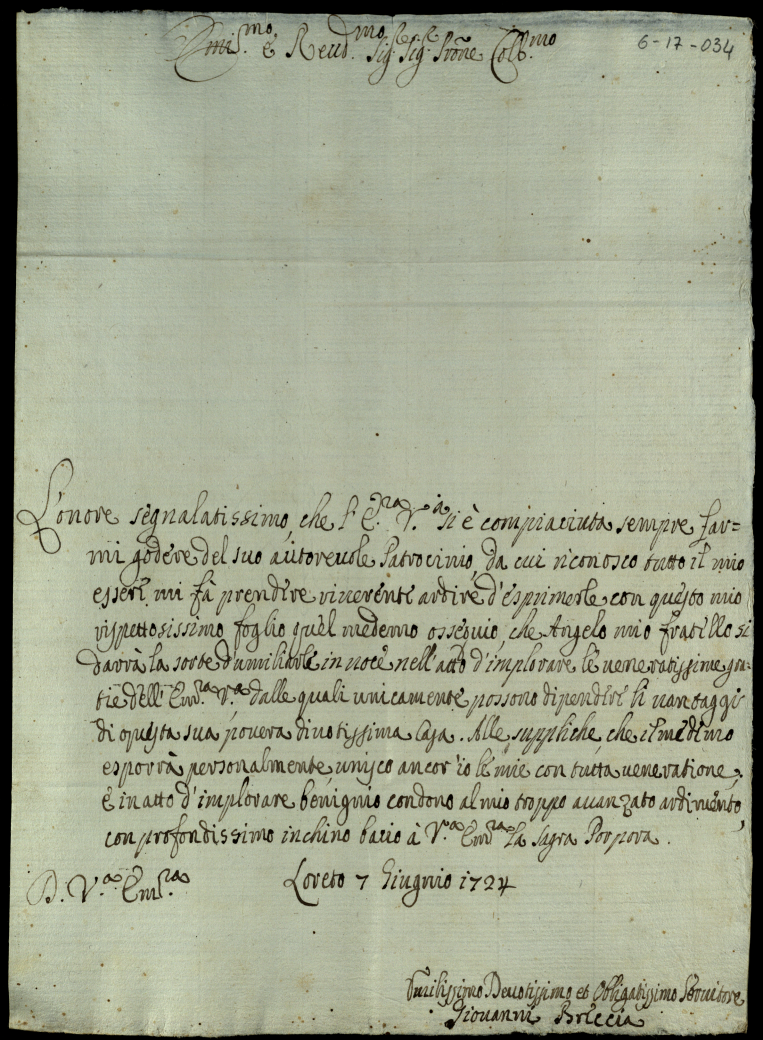 Emi.mo e Reud.mo Sig.r Sig.r Prõne Coll.mo
6-17-034
L'onore segnalatissimo, che l'E.ra V.a si è compiaciuta sempre far=
mi godere del suo autoreuole Patrocinio, da cui riconosco tutto il mio
essere, mi fà prendere riuerente ardire d'esprimerle con questo mio
rispettosissimo foglio quel medemo ossequio, che Angelo mio fratello si
darrà la sorte d'umiliarle in uoce nell'atto d'implorare le ueneratissime gra=
tie dell'Em.ra V.ra dalle quali unicamente possono dipendere li uantaggi
di questa sua pouera diuotissima Casa. Alle suppliche, che il medemo
esporrà personalmente, unisco ancor'io le mie con tutta ueneratione,
e in atto d'implorare benignio condono al mio troppo auanzato ardimento,
con profondissimo inchino bacio à V.ra Em.ra la Sagra Porpora.
D. V.a Em.ra
Loreto 7 Giugnio 1724
Vmilissimo Deuotissimo et Obligatissimo Seruitore
Giouanni Breccia